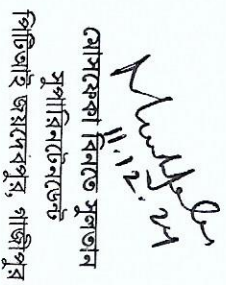 11.12.24
মোসফেকা বিনতে সুলতান
সুপারিনটেনডেন্ট
পিটিআই জয়দেবপুর, গাজীপুর